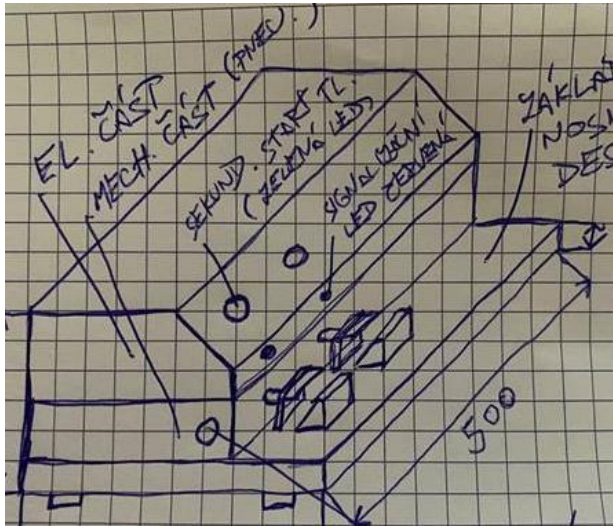 EL. ČÁST
MECH. ČÁST (PNEU.)
SEKUND. START TL.
(ZELENÁ LED)
SIGNALIZAČNÍ
LED ČERVENÁ
ZÁKLAD
NOS
DES
500